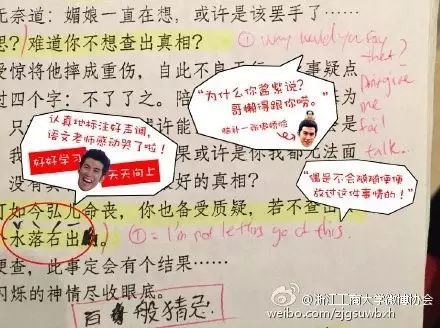 无奈道：媚娘一直在想，或许是该罢手了……
思？难道你不想查出真相？
① Why would you say that?
受惊将他摔成重伤，自此不良
事疑点
过四个字：不了了之。陪
Don't give me
fail
talk..
“为什么你酱紫说？
哥懒得跟你唠。”
脑补一张傲娇脸
认真地标注好声调，
语文老师感动哭了啦！
好好学习
天天向上
或许是你我都无法面
没有真
好的真相？
“偶是不会随随便便
放过这件事情的！”
可如今弘儿命丧，你也备受质疑，若不查出
水落石出
① = I'm not letting go of this.
便查，此事定会有个结果……
闪烁的神情尽收眼底。
百般猜忌
@浙江工商大学微博协会
weibo.com/zjgsuwbxh